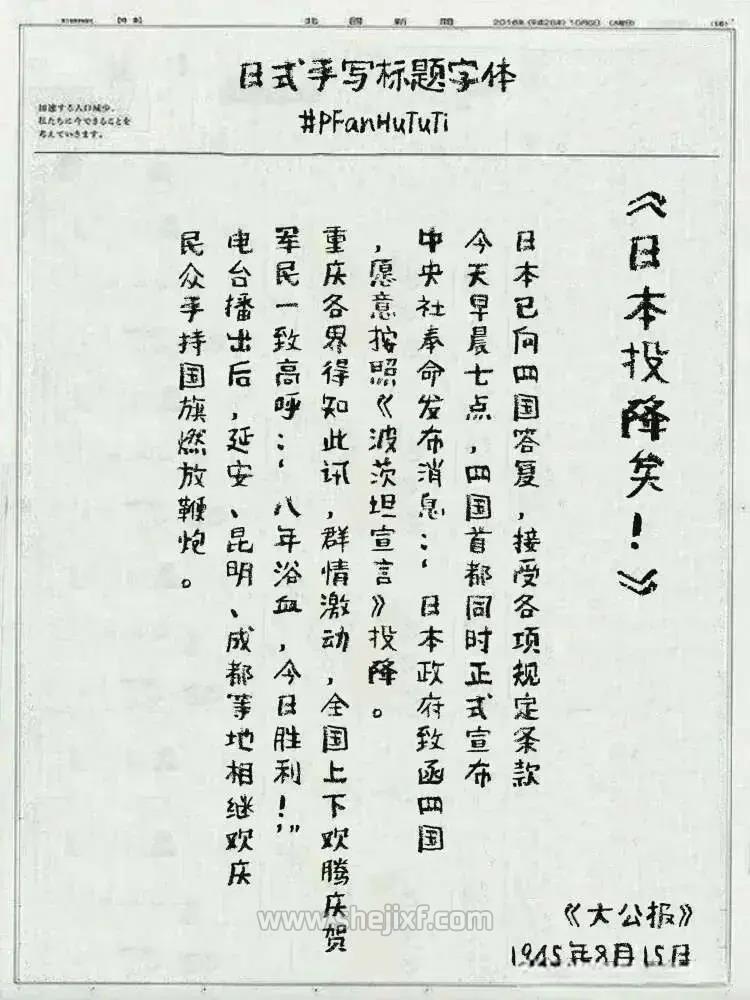 北國新聞
日式手写标题字体
#PFanHuTuTi
加速する人口減少、
私たちに今できることを
考えていきます。
《日本投降矣！》
日本已向四国答复，接受各项规定条款
今天早晨七点，四国首都同时正式宣布
中央社奉命发布消息：‘日本政府致函四国
，愿意按照《波茨坦宣言》投降。
重庆各界得知此讯，群情激动，全国上下欢腾庆贺
军民一致高呼：‘八年浴血，今日胜利！”
电台播出后，延安、昆明、成都等地相继欢庆
民众手持国旗燃放鞭炮。
《大公报》
1945年8月15日
www.shejixf.com